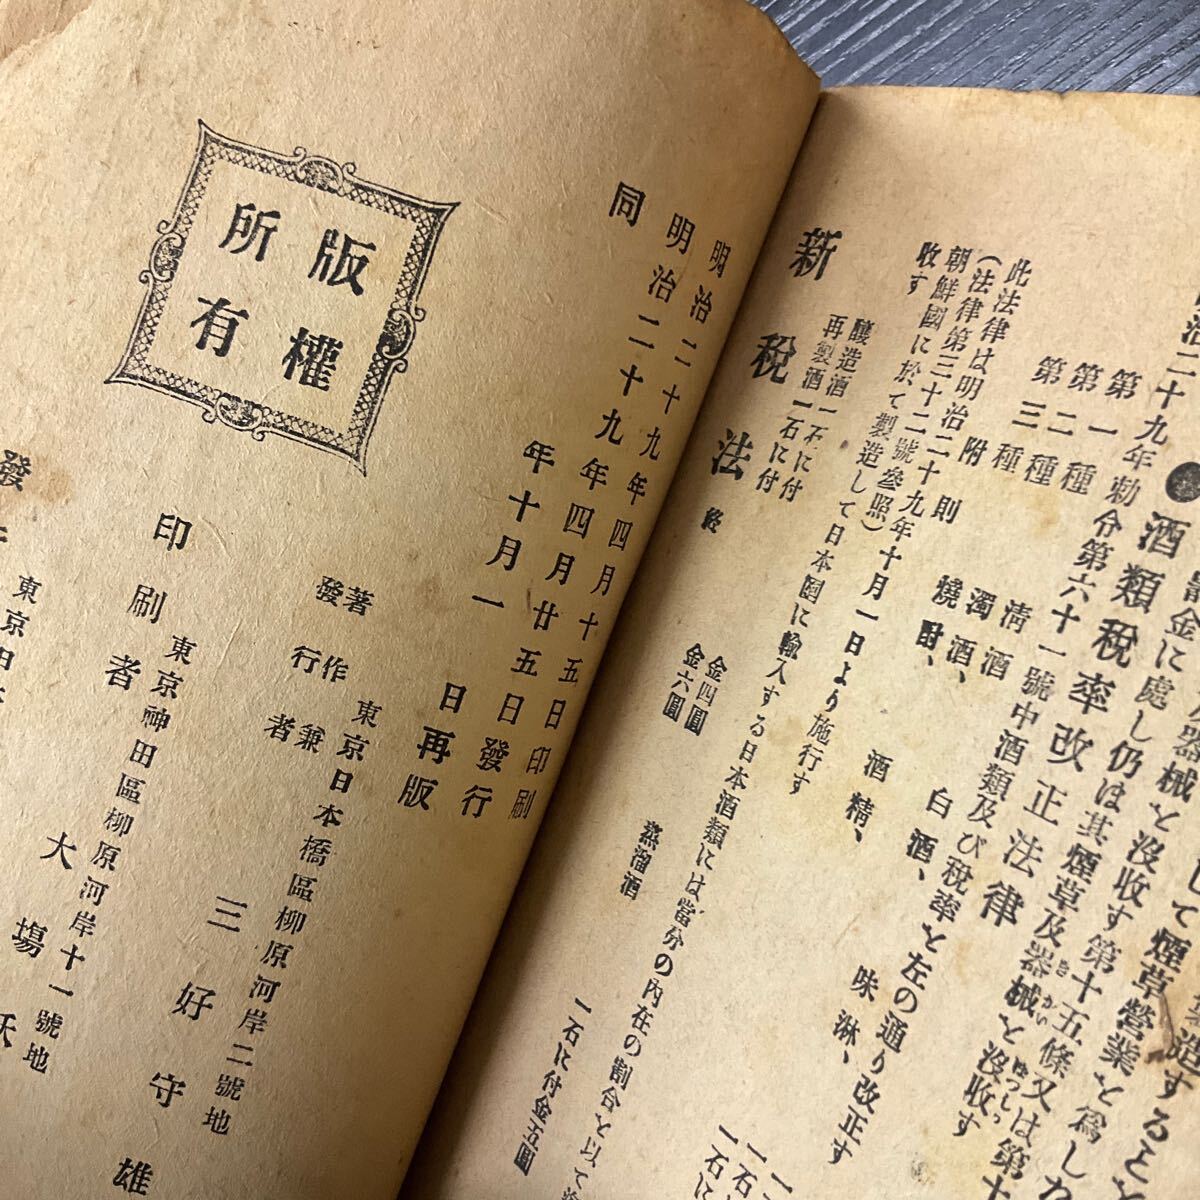 金に處し仍は其煙草及器械を沒收す第十五條又は第十
器械を沒收す
●酒類税率改正法律
治二十九年勅令第六十一號中酒類及び税率を左の通り改正す
第一種 清酒、白酒、味淋、
第二種 濁酒、
第三種 燒酎、酒精、
附則
此法律は明治二十九年十月一日より施行す
(法律第三十二號參照)
朝鮮國に於て製造して日本國に輸入する日本酒類には當分の内在の割合を以て
收す
醸造酒一石に付 金四圓 蒸溜酒 一石に付金五圓
再製酒一石に付 金六圓
新税法 終
明治二十九年四月十五日印刷
明治二十九年四月廿五日發行
同年十月一日再版
版權所有
著作兼發行者 東京日本橋區柳原河岸二號地
三好守雄
印刷者 東京神田區柳原河岸十一號地
大場
發
東京